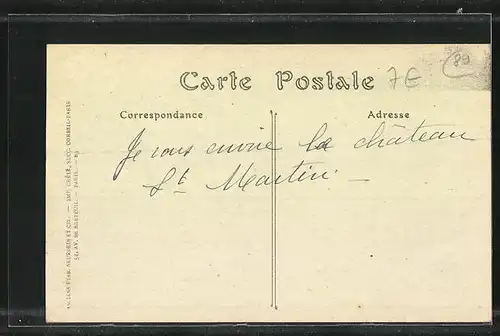 Carte Postale
7 E
89
Correspondance
Adresse
Je vous envoie le château
St Martin. —
IMP. CRÉTÉ, SUCC. CORBEIL-PARIS
PARIS